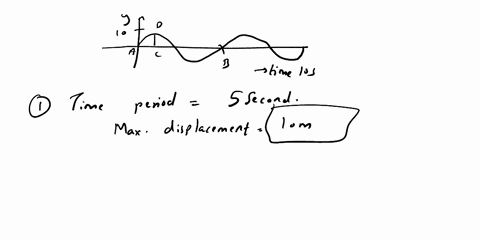 y
10 D
A C B
→time 10s
① Time period = 5 second.
Max. displacement = 10m